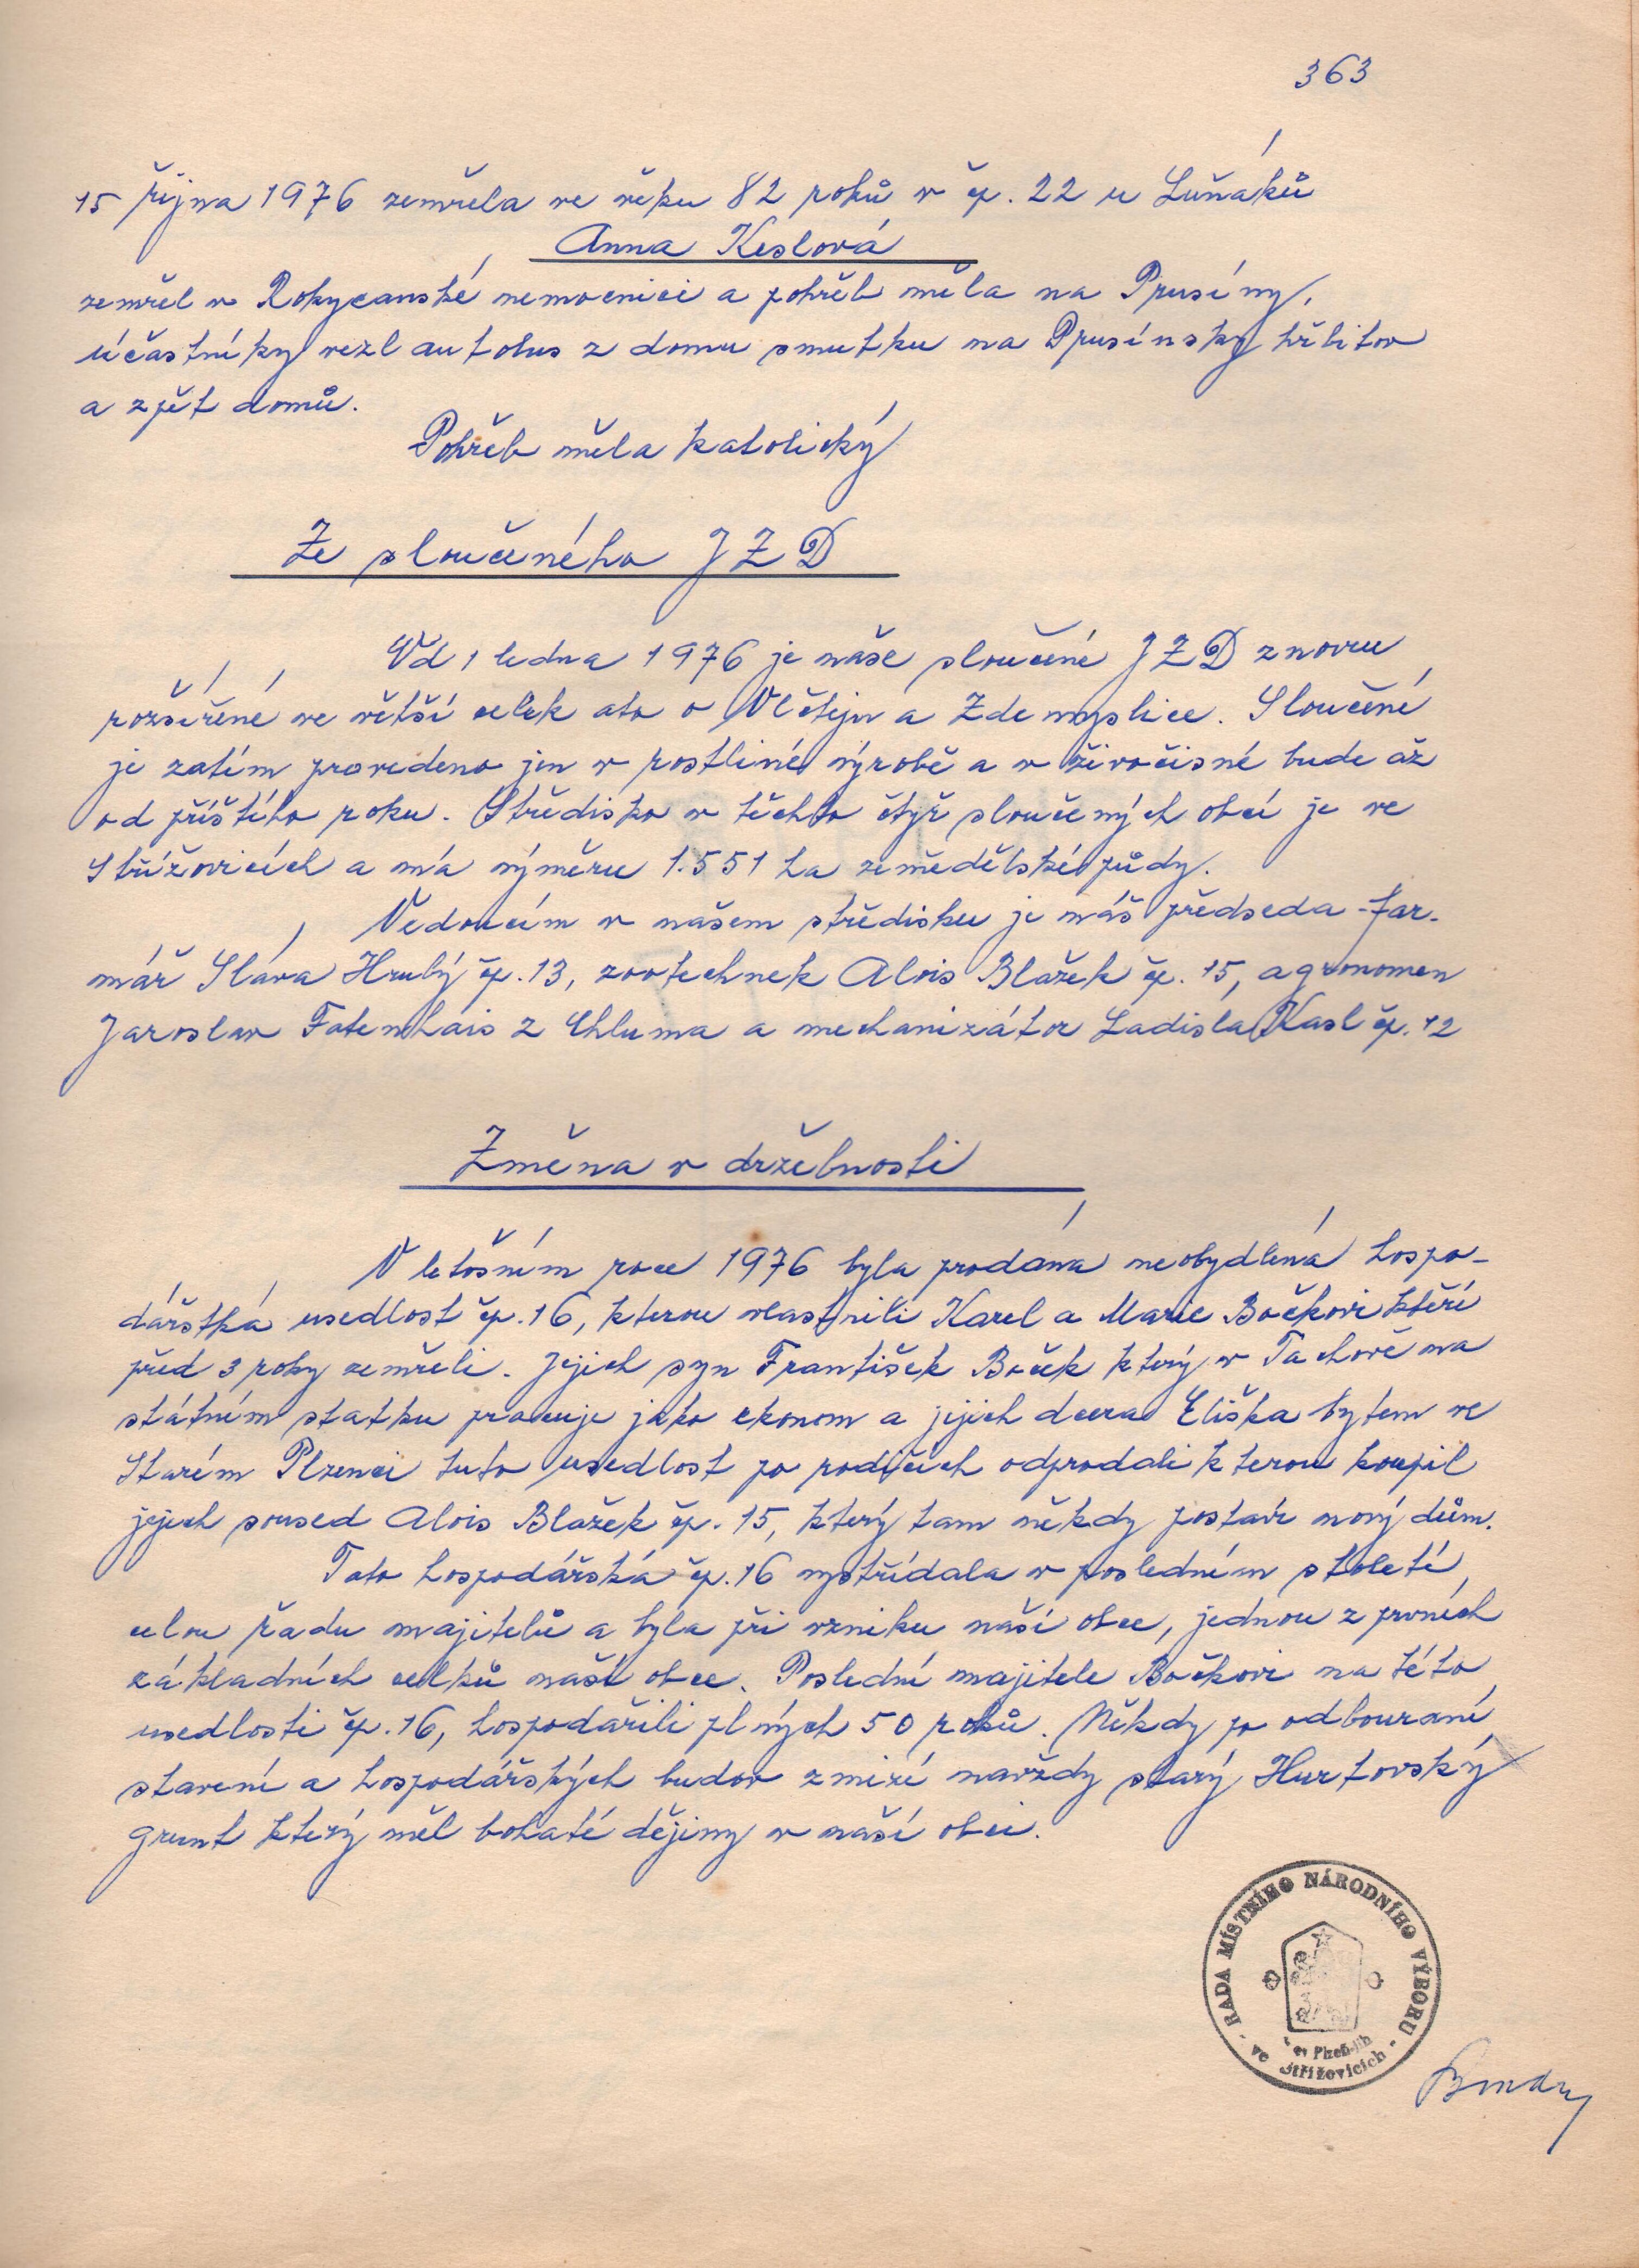 363
15 října 1976 zemřela ve věku 82 roků v čp. 22 u Luňáků
Anna Keslová
zemřel v Rokycanské nemocnici a pohřeb měla na Prusíny,
účastníky vezl autobus z domu smutku na Prusínský hřbitov
a zpět domů.
Pohřeb měla katolický
Ze sloučeného JZD
Od 1 ledna 1976 je naše sloučené JZD znovu
rozšířené ve větší celek ato o Vlčtejn a Zdemyslice. Sloučení
je zatím provedeno jen v rostliné výrobě a v živočisné bude až
od příštího roku. Středisko v těchto čtyř sloučených obcí je ve
Střížovicích a má výměru 1.551 ha zemědělské půdy.
Vedoucím v našem středisku je náš předseda - far-
mář Sláva Hrubý čp. 13, zootechnek Alois Blažek čp. 15, agronomem
Jaroslav Fatenhais z Chluma a mechanizátor Ladisla Kasl čp. 12
Změna v držebnosti
V letošním roce 1976 byla prodána neobydlená hospo-
dářstká usedlost čp. 16, kterou vlastnili Karel a Marie Bočkovi kteří
před 3 roky zemřeli. Jejich syn František Boček který v Tachově na
státním statku pracuje jako ekonom a jejich dcera Eliška bytem ve
Starém Plzenci tuto usedlost po rodičích odprodali kterou koupil
jejich soused Alois Blažek čp. 15, který tam někdy postaví nový dům.
Tato hospodářská čp. 16 vystřídala v posledním století
celou řadu majitelů a byla při vzniku naší obce, jednou z prvních
základních celků naší obce. Poslední majitele Bočkovi na této
usedlosti čp. 16, hospodařili plných 50 roků. Někdy po odbourání
stavení a hospodářských budov zmizí navždy starý Hurtovský
grunt který měl bohaté dějiny v naší obci.
RADA MÍSTNÍHO NÁRODNÍHO VÝBORU
Plzeň-jih
ve Střížovicích